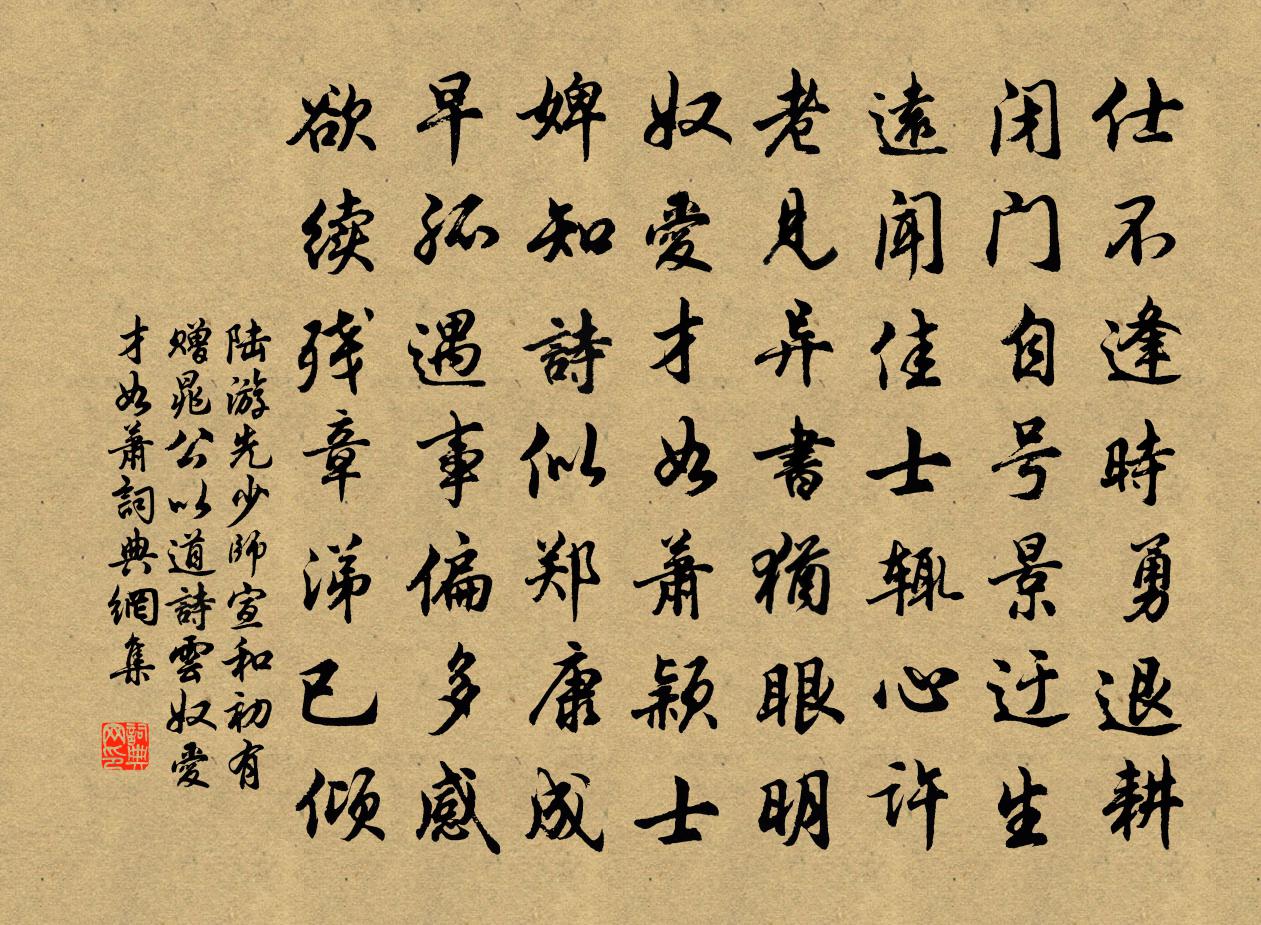 仕不逢時勇退耕
闭门自号景迂生
遠聞佳士辄心许
老見异書猶眼明
奴愛才如萧颖士
婢知詩似郑康成
早孤遇事偏多感
欲续残章涕已倾
陆游先少師宣和初有
赠晁公以道詩雲奴愛
才如萧詞典網集
詞典网印